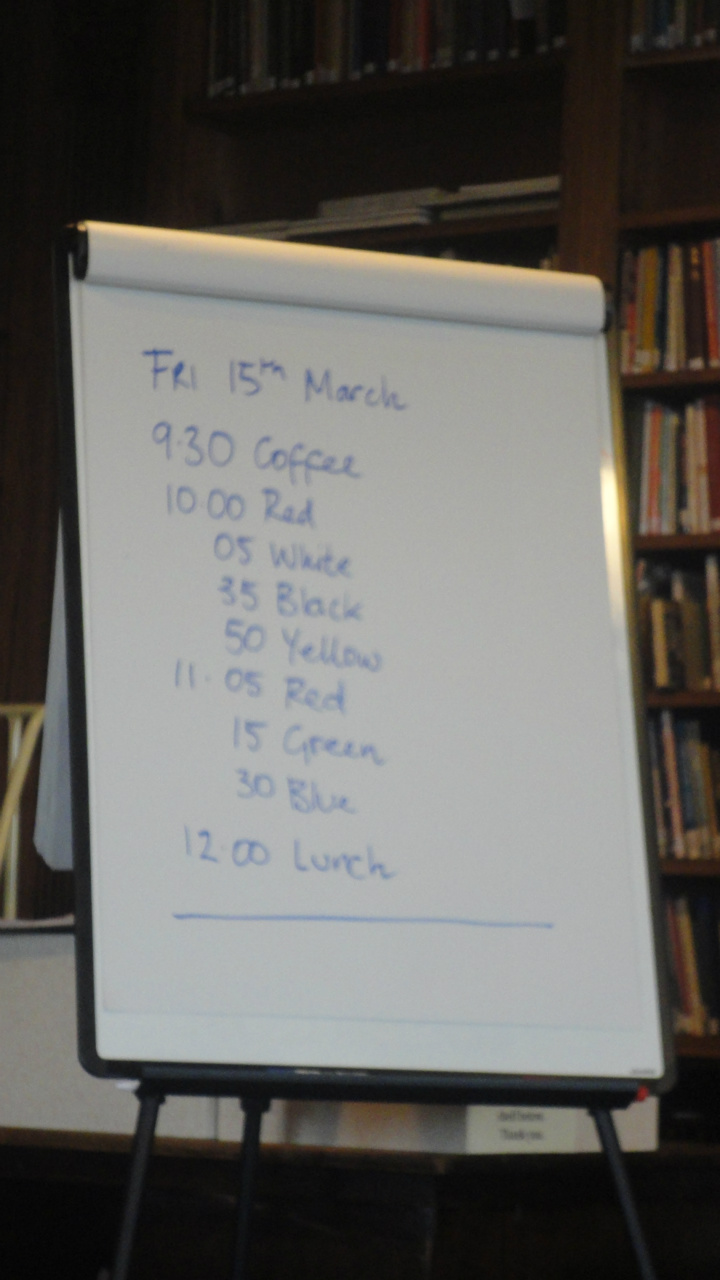 FRI 15th March
9.30 Coffee
10.00 Red
05 White
35 Black
50 Yellow
11.05 Red
15 Green
30 Blue
12.00 Lunch
Thank you.